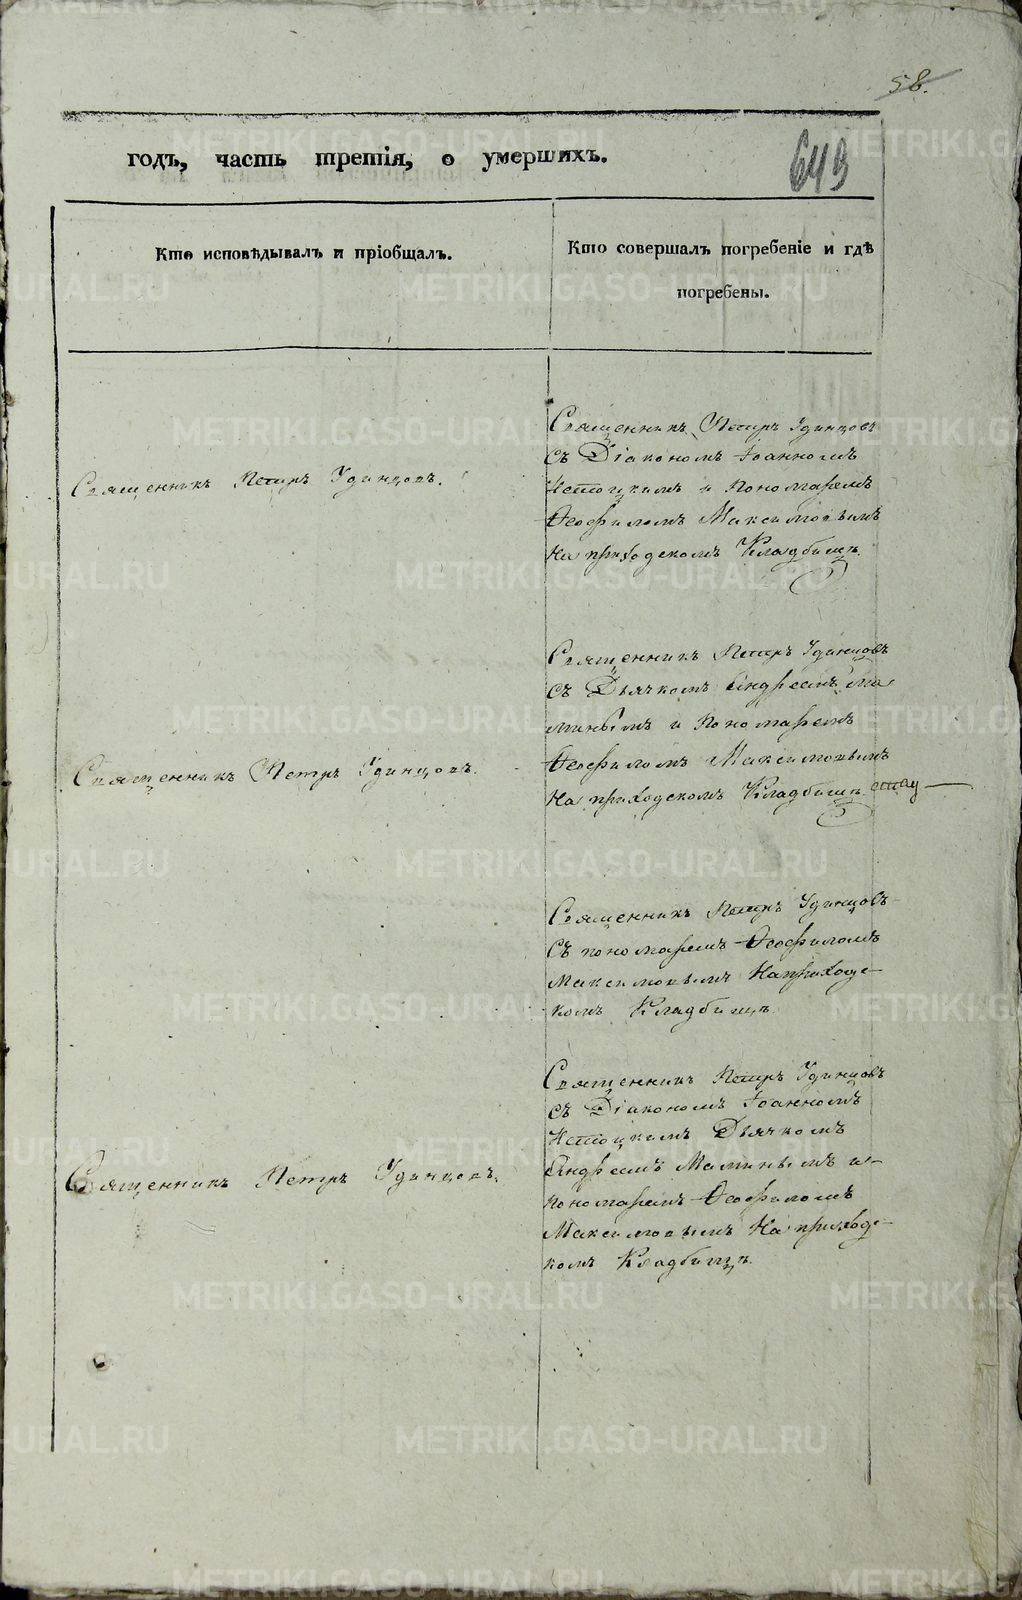 58.
649
годъ, часть третія, о умершихъ.
Кто исповѣдывалъ и пріобщалъ.
Кто совершалъ погребеніе и гдѣ
погребены.
Священникъ Петръ Удинцовъ.
Священникъ Петръ Удинцовъ
съ Діакономъ Іоанномъ
и Пономаремъ
Ѳеофиломъ Максимовымъ
На приходскомъ Кладбищѣ.
Священникъ Петръ Удинцовъ.
Священникъ Петръ Удинцовъ
съ Дьячкомъ Андреемъ Ма
минымъ и Пономаремъ
Ѳеофиломъ Максимовымъ
На приходскомъ Кладбищѣ
Священникъ Петръ Удинцовъ
съ пономаремъ Ѳеофиломъ
Максимовымъ На приходс-
комъ Кладбищѣ
Священникъ Петръ Удинцовъ.
Священникъ Петръ Удинцовъ
съ Діакономъ Іоанномъ
Дьячкомъ
Андреемъ Маминымъ и
пономаремъ Ѳеофиломъ
Максимовымъ На приходс-
комъ Кладбищѣ.
METRIKI.GASO-URAL.RU